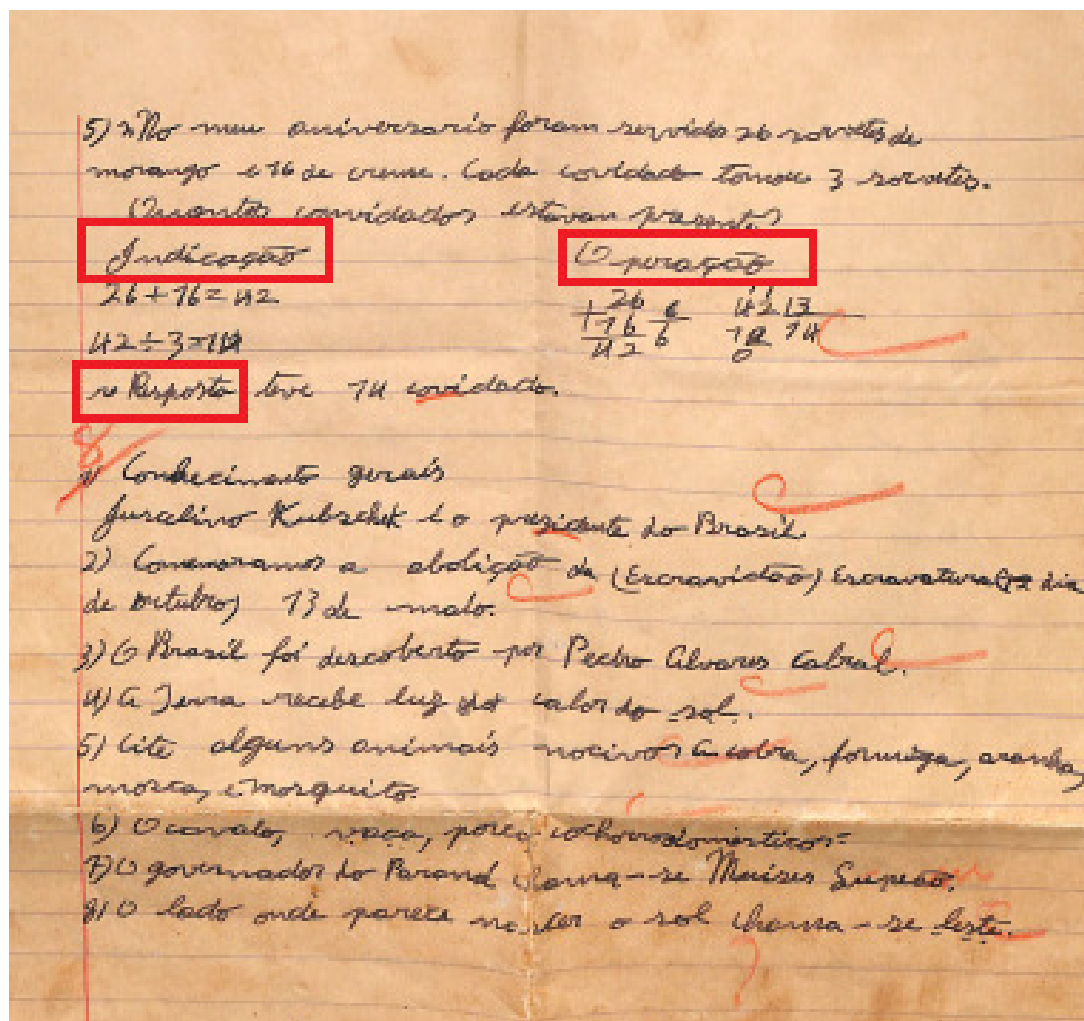 5) No meu aniversario foram servido 26 sorvetes de
morango e 16 de creme. Cada covidado tomou 3 sorvetes.
Quantos convidados estavam presentes
Indicação Operação
26+16=42 +26 6 42 13
42÷3=14 16 6 12 14
42 0
Resposta teve 14 covidado.
8
1) Conhecimento gerais
Jurcelino Kubschek é o prezidente do Brasil.
2) Comemoramos a abolição da (Escravidão) Escravatura dia
de outubro) 13 de maio.
3) O Brasil foi descoberto por Pedro Alvares Cabral.
4) A Terra recebe luz calor do sol.
5) Cite alguns animais nocivos a cobra, formiga, aranha,
mosca, e mosquito.
6) O cavalo, vaca, porco, cachorro domesticos=
7) O governador do Paraná chama-se Muises Lupeão.
8) O lado onde parece nascer o sol chama-se leste.